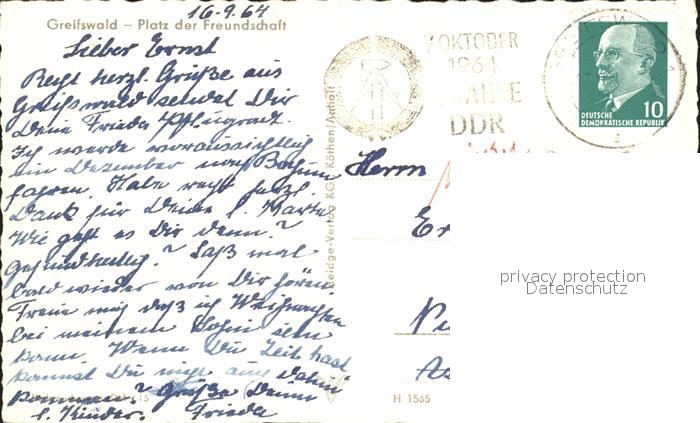 16.9.64
Greifswald – Platz der Freundschaft
Lieber Ernst
Recht herzl. Grüße aus
Greifswald sendet Dir
Deine Frieda
Ich werde voraussichtlich
im Dezember nach Bochum
fahren. Habe recht herzl.
Dank für Deine l. Karte
Wie geht es Dir denn?
Gesundheitlig? Laß mal
bald wieder von Dir hören.
Freue mig daß ich Weihnachten
bei meinem Sohn sein
kann. Wenn Du Zeit hast
kannst Du nigt auch dahin
kommen? Grüße Deine
l. Kinder. Frieda
7. OKTOBER
1964
DDR
10
DEUTSCHE
DEMOKRATISCHE REPUBLIK
Herrn
Er
privacy protection
Datenschutz
H 1565